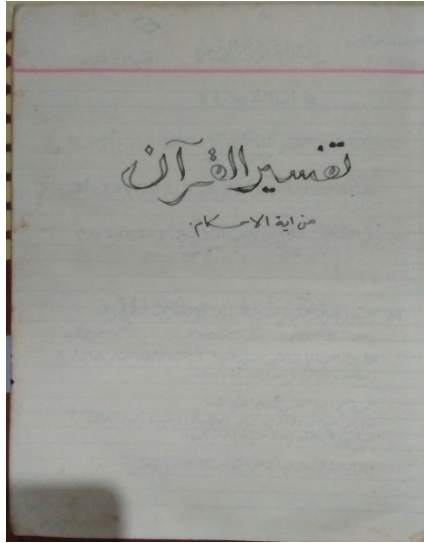 تفسير القرآن
من اية الاحكام